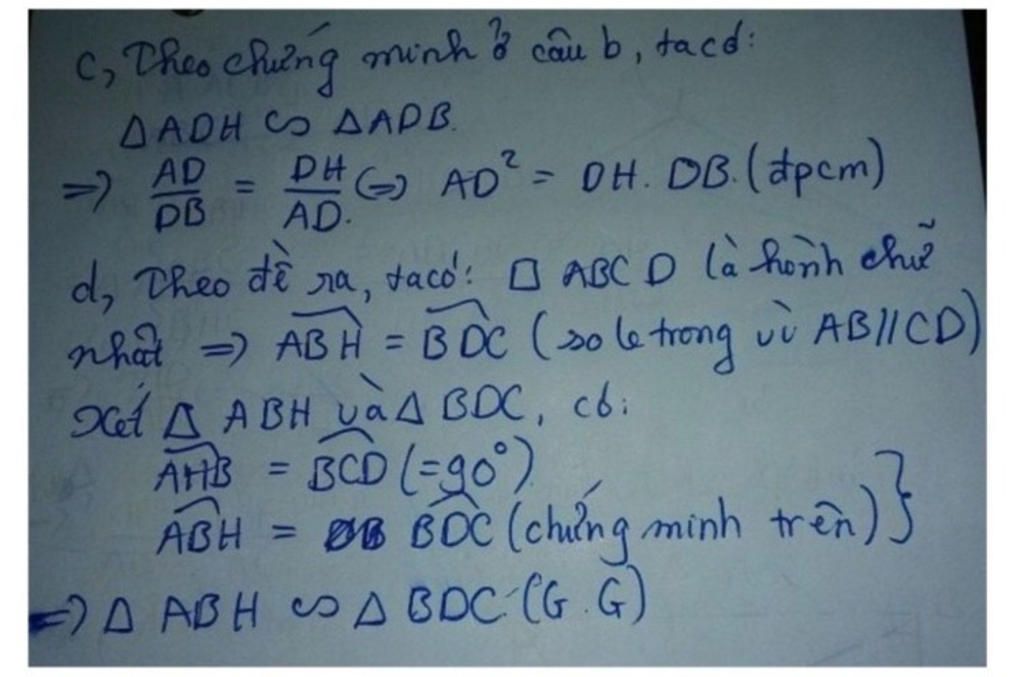 c, Theo chứng minh ở câu b, ta có:
△ADH ∽ △ADB.
=> AD/DB = DH/AD. <=> AD² = DH. DB. (đpcm)
d, Theo đề ra, ta có: □ ABCD là hình chữ
nhật => ABH = BDC (so le trong vì AB//CD)
Xét △ ABH và △ BDC, có:
AHB = BCD (=90°)
ABH = BDC (chứng minh trên) }
=> △ ABH ∽ △ BDC (G.G)